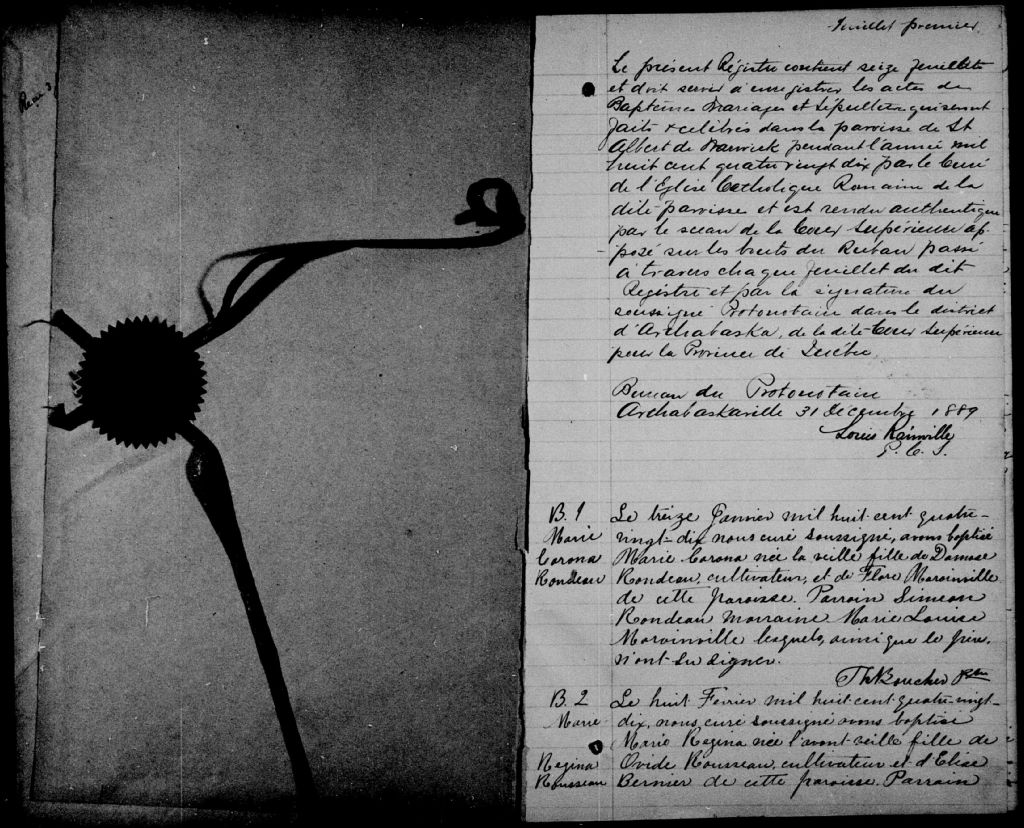 feuillet premier
Le présent Régistre contient seize feuillets
et doit servir à enregistrer les actes de
Baptêmes Mariages et Sépultures qui seront
faits & célébrés dans la paroisse de St
Albert de Warwick pendant l'année mil
huit cent quatre vingt dix par le Curé
de l'Eglise Catholique Romaine de la
dite paroisse et est rendu authentique
par le sceau de la Cour Supérieure ap-
posé sur les bouts du Ruban passé
à travers chaque feuillet du dit
Régistre et par la signature du
soussigné Protonotaire dans le district
d'Arthabaska, de la dite Cour Supérieure
pour la Province de Québec.
Bureau du Protonotaire
Arthabaskaville 31 Décembre 1889
Louis Rainville
P. C. S.
B. 1 Le treize Janvier mil huit cent quatre-
Marie vingt-dix nous curé soussigné, avons baptisé
Corona Marie Corona née la veille fille de Damase
Rondeau Rondeau, cultivateur, et de Flore Marainville
de cette paroisse. Parrain Simeon
Rondeau marraine Marie Louise
Marainville lesquels, ainsi que le père,
n'ont su signer.
Th Boucher Ptre
B. 2 Le huit Fevrier mil huit cent quatre-vingt-
Marie dix, nous, curé soussigné avons baptisé
Marie Regina née l'avant veille fille de
Regina Ovide Rousseau, cultivateur et d'Elise
Rousseau Bernier de cette paroisse. Parrain